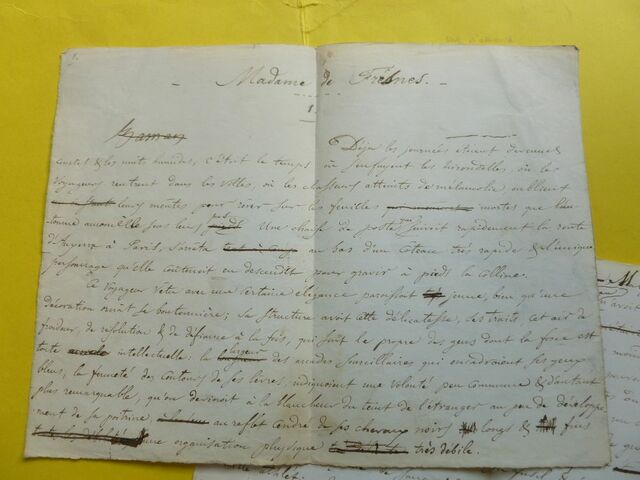 Madame de Fresnes.
1
Déja les journées étaient devenues
courtes & les nuits humides, c'était le temps où s'enfuyent les hirondelles, où les
voyageurs rentrent dans les villes, où les chasseurs atteints de mélancolie oublient
leurs meutes pour rêver sur les feuilles mortes que l'au-
tomne amoncèle sous leurs pieds. Une chaise de poste qui suivoit rapidement la route
d'Auxerre à Paris, s'arrêta au bas d'un coteau très rapide & l'unique
personnage qu'elle contenoit en descendit pour gravir à pieds la colline.
Ce voyageur vêtu avec une certaine élégance paraissait jeune, bien qu'une
décoration ornât sa boutonnière; sa structure avoit cette délicatesse, ses traits cet air de
froideur, de résolution & de à la fois, qui sont le propre des gens dont la force est
toute intellectuelle; la largeur des arcades surcillaires qui encadroient ses yeux
bleus, la fermeté des contours de ses lèvres, indiquoient une volonté peu commune & d'autant
plus remarquable, qu'on devinoit à la blancheur du teint de l'étranger au peu de développe-
ment de sa poitrine, au reflet tendre de ses cheveux noirs longs & fins
une organisation physique très débile.